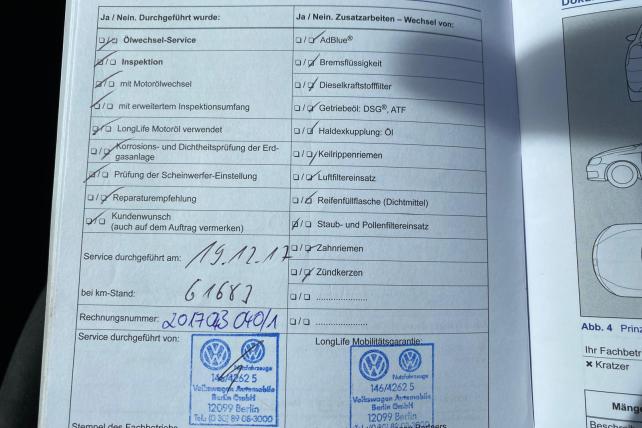 Ja / Nein. Durchgeführt wurde:
☐/☐ Ölwechsel-Service
☐/☐ Inspektion
☐/☐ mit Motorölwechsel
☐/☐ mit erweitertem Inspektionsumfang
☐/☐ LongLife Motoröl verwendet
☐/☐ Korrosions- und Dichtheitsprüfung der Erd-
gasanlage
☐/☐ Prüfung der Scheinwerfer-Einstellung
☐/☐ Reparaturempfehlung
☐/☐ Kundenwunsch
(auch auf dem Auftrag vermerken)
Service durchgeführt am: 19.12.17
bei km-Stand:
Rechnungsnummer:
Service durchgeführt von:
Nutzfahrzeuge
146/4262 5
Volkswagen Automobile
Berlin GmbH
12099 Berlin
Tel.: (0 30) 89 08-3000
Stempel des Fachbetriebs
Ja / Nein. Zusatzarbeiten – Wechsel von:
☐/☐ AdBlue®
☐/☐ Bremsflüssigkeit
☐/☐ Dieselkraftstofffilter
☐/☐ Getriebeöl: DSG®, ATF
☐/☐ Haldexkupplung: Öl
☐/☐ Keilrippenriemen
☐/☐ Luftfiltereinsatz
☐/☐ Reifenfüllflasche (Dichtmittel)
☐/☐ Staub- und Pollenfiltereinsatz
☐/☐ Zahnriemen
☐/☐ Zündkerzen
☐/☐ ....................
☐/☐ ....................
LongLife Mobilitätsgarantie:
Nutzfahrzeuge
146/4262 5
Volkswagen Automobile
Berlin GmbH
12099 Berlin
Partners
Abb. 4 Prinz
Ihr Fachbetr
× Kratzer
Mäng